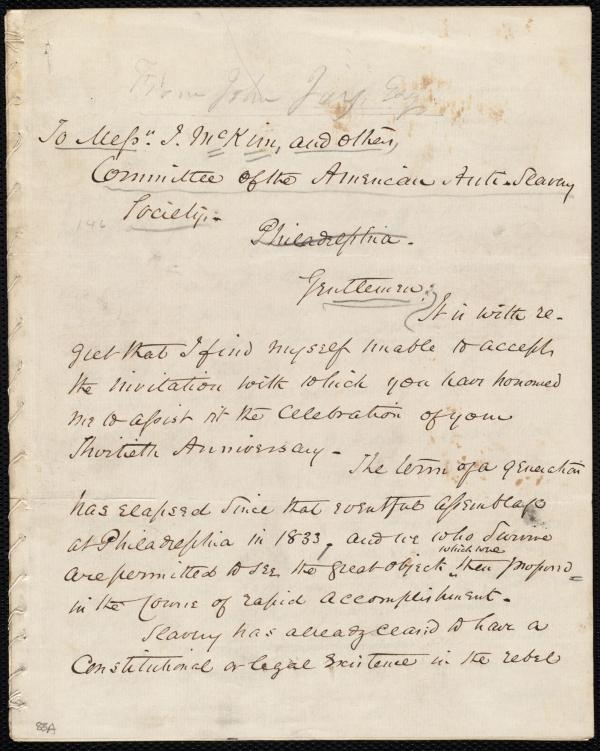 From John Jay, Esq.
To Messrs. J. McKim, and others,
Committee of the American Anti-Slavery
Society.
146
Philadelphia.
Gentlemen:
It is with re-
gret that I find myself unable to accept
the invitation with which you have honored
me to assist at the Celebration of your
Thirtieth Anniversary.
The term of a generation
has elapsed since that eventful assemblage
at Philadelphia in 1833, and we who survive
which we
are permitted to see the great object then proposed
in the course of rapid accomplishment.
Slavery has already ceased to have a
Constitutional or legal existence in the rebel
88A